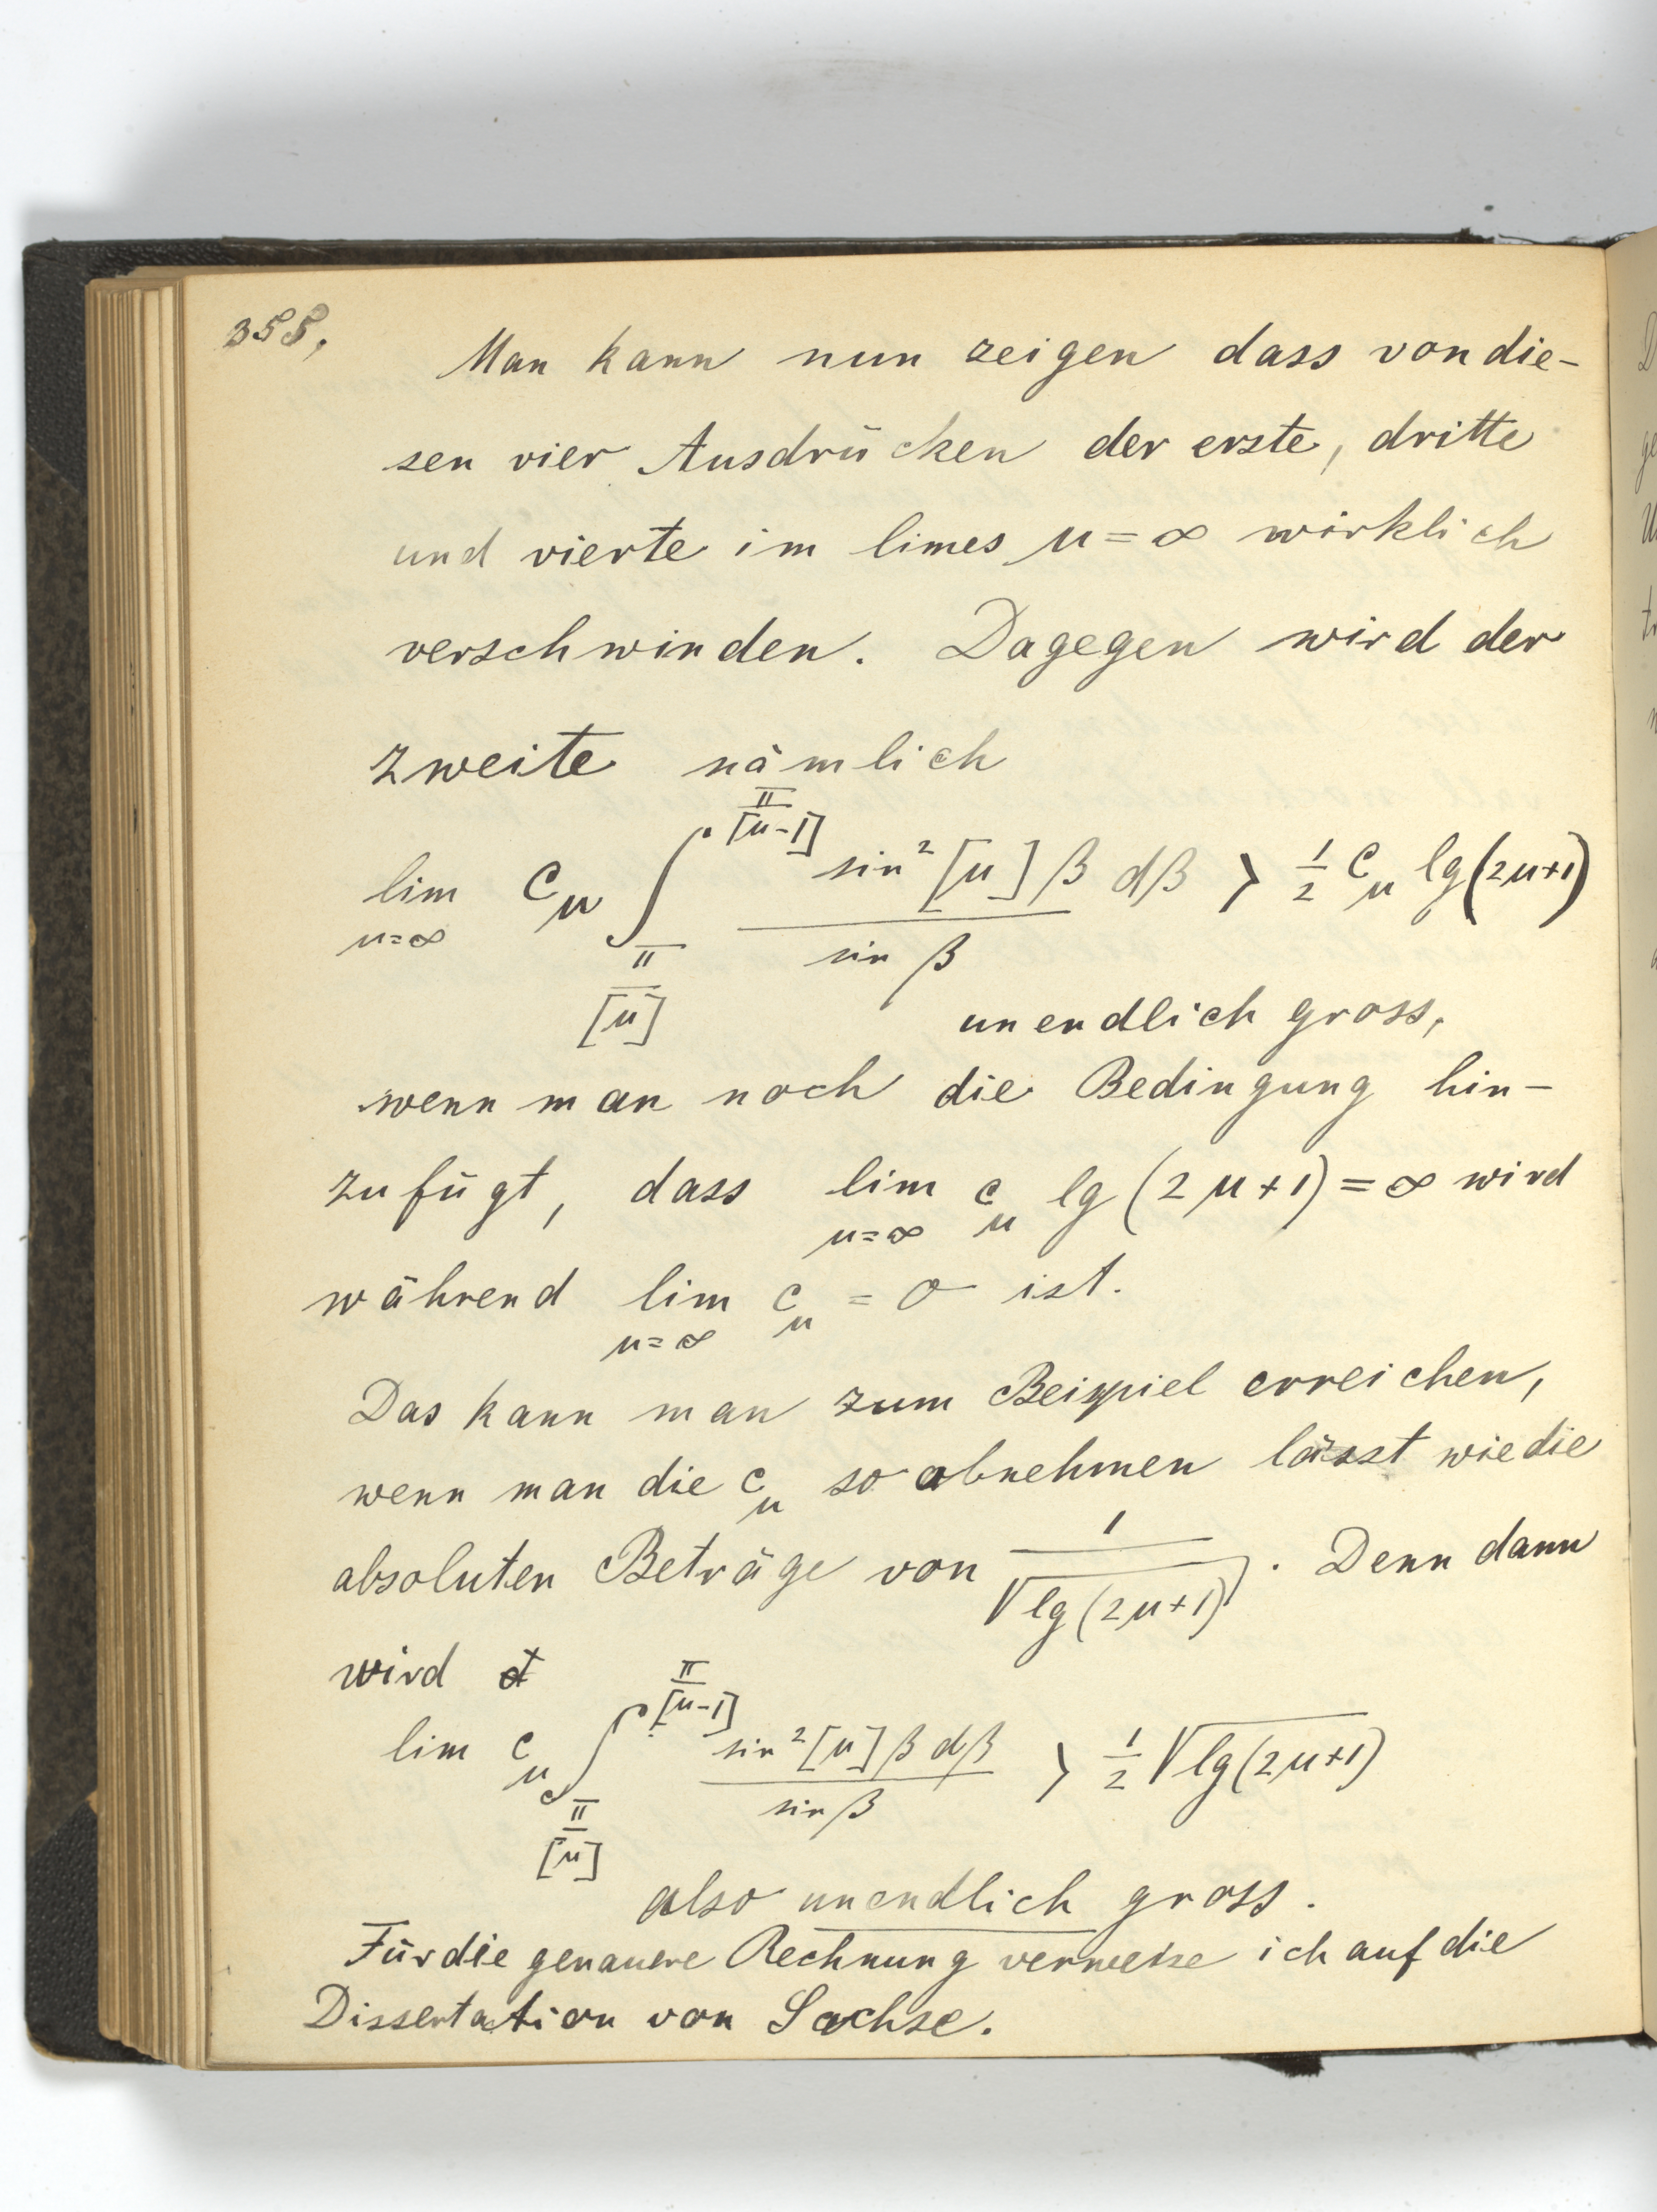 358.
Man kann nun zeigen dass von die-
sen vier Ausdrücken der erste, dritte
und vierte im limes μ = ∞ wirklich
verschwinden. Dagegen wird der
zweite nämlich
$\lim_{\mu=\infty} c_\mu \int_{\frac{\pi}{[\mu]}}^{\frac{\pi}{[\mu-1]}} \frac{\sin^2 [\mu] \beta \, d\beta}{\sin \beta} > \frac{1}{2} c_\mu \lg(2\mu+1)$
unendlich gross,
wenn man noch die Bedingung hin-
zufügt, dass $\lim_{\mu=\infty} c_\mu \lg(2\mu+1) = \infty$ wird
während $\lim_{\mu=\infty} c_\mu = 0$ ist.
Das kann man zum Beispiel erreichen,
wenn man die $c_\mu$ so abnehmen lässt wie die
absoluten Beträge von $\frac{1}{\sqrt{\lg(2\mu+1)}}$. Denn dann
wird
$\lim c_\mu \int_{\frac{\pi}{[\mu]}}^{\frac{\pi}{[\mu-1]}} \frac{\sin^2 [\mu] \beta \, d\beta}{\sin \beta} > \frac{1}{2} \sqrt{\lg(2\mu+1)}$
also unendlich gross.
Für die genauere Rechnung verweise ich auf die
Dissertation von Sachse.